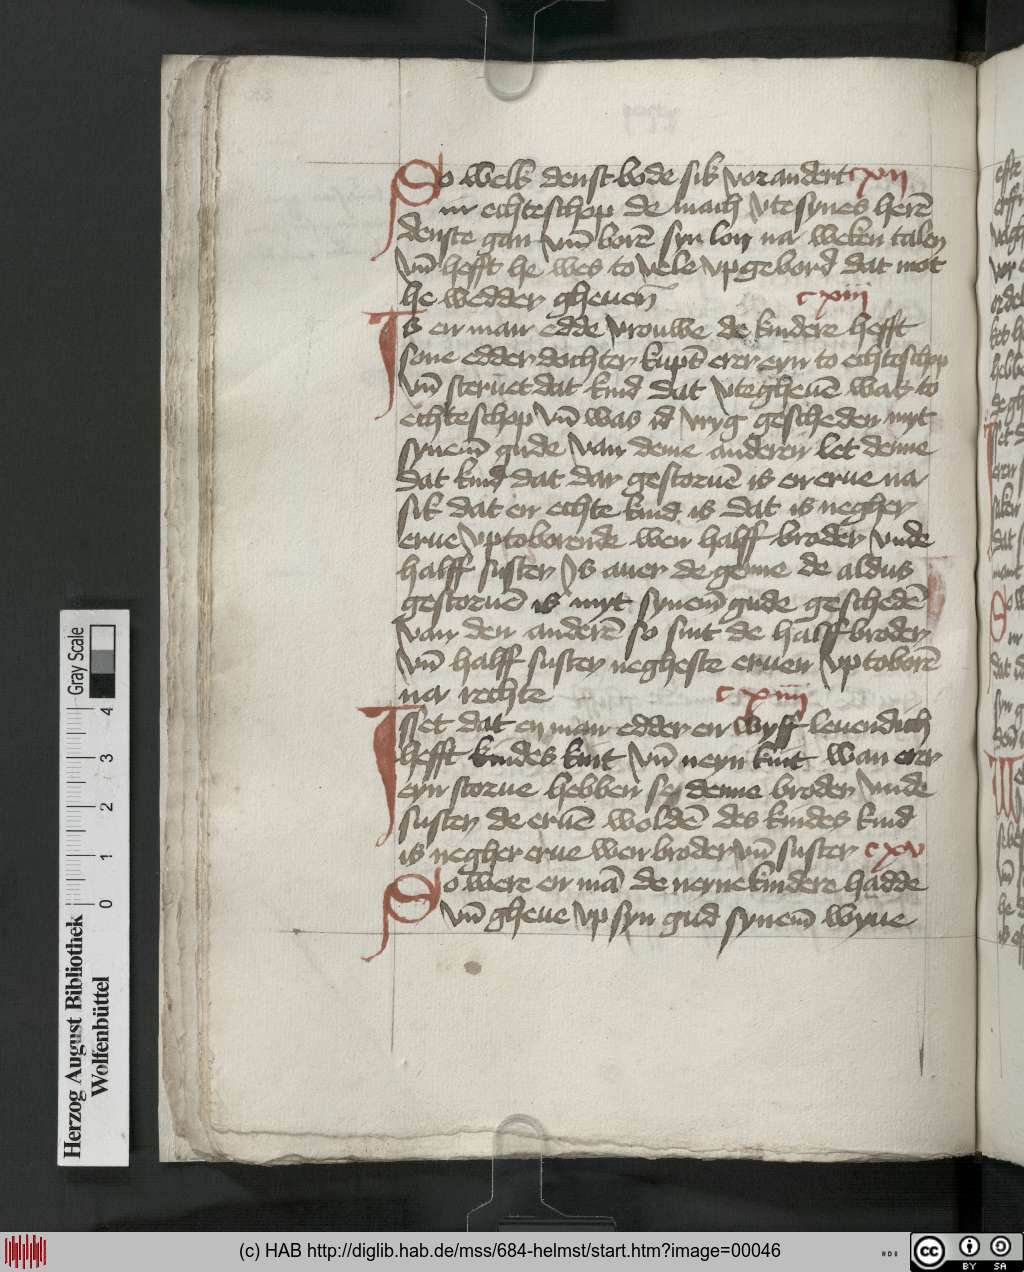 So welk denst bode sik vorandert cxii
in echteschop de mach vte synes herē
denste gan vn̄ borē syn lon na weken talen
vn̄ hefft he wes to vele vpgebord dat mot
he wedder gheuen cxiii
Is en man edde vrouwe de kindere hefft
sone edder dochter kūpt erer eyn to echteschop
vn̄ steruet dat kind dat vtegheuē wat to
echteschop vn̄ was id vryg gescheden myt
synem̄ gude van deme anderen let denne
dat kind dat dar gestoruē is en erue na
sik dat en echte kind is dat is negher
erue vptoborende wen halff broder vnde
halff suster Is auer de gene de aldus
gestoruē is myt synem̄ gude geschedē
van den anderē so sint de halff broder
vn̄ halff suster negheste eruen vptoborē
na rechte cxiiii
Isset dat en man edder en wyff leuendich
hefft kindes kint vn̄ neyn kint wan erer
eyn storue hebben se denne broder vnde
suster de eruē woldē des kindes kind
is negher erue wen broder vn̄ suster cxv
So were en mā de nene kindere hadde
vn̄ gheue vp syn gud synem̄ wyue
Herzog August Bibliothek
Wolfenbüttel
Gray Scale
0 1 2 3 4
(c) HAB http://diglib.hab.de/mss/684-helmst/start.htm?image=00046
cc BY SA